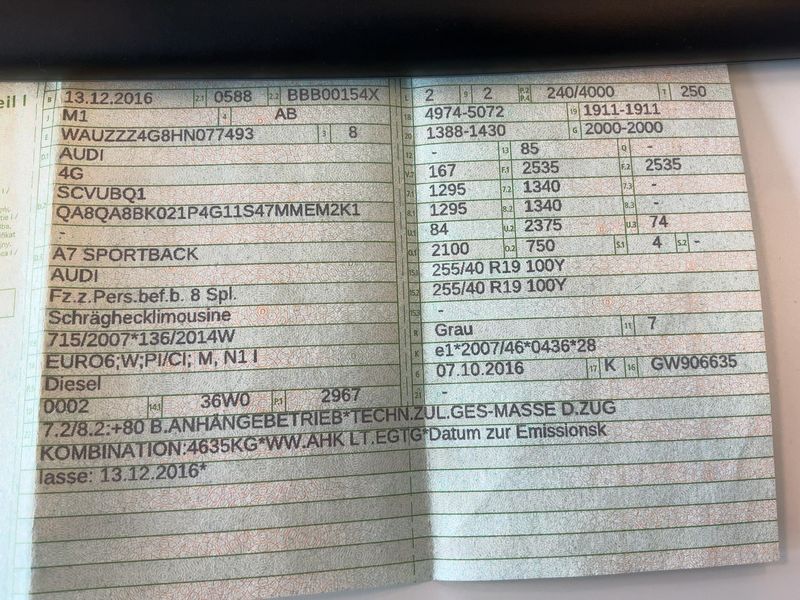 eil I
B 13.12.2016 2.1 0588 2.2 BBB00154X
J M1 4 AB
E WAUZZZ4G8HN077493 3 8
D.1 AUDI
4G
D.2 SCVUBQ1
QA8QA8BK021P4G11S47MMEM2K1
-
D.3 A7 SPORTBACK
2 AUDI
5 Fz.z.Pers.bef.b. 8 Spl.
Schräghecklimousine
715/2007*136/2014W
EURO6;W;PI/CI; M, N1 I
Diesel
0002 14.1 36W0 P.1 2967
L 2 9 2 P.2 P.4 240/4000 T 250
18 4974-5072 19 1911-1911
20 1388-1430 G 2000-2000
12 - 13 85 Q -
V.7 167 F.1 2535 F.2 2535
7.1 1295 7.2 1340 7.3 -
8.1 1295 8.2 1340 8.3 -
U.1 84 U.2 2375 U.3 74
O.1 2100 O.2 750 S.1 4 S.2 -
15.1 255/40 R19 100Y
15.2 255/40 R19 100Y
15.3 -
R Grau 11 7
K e1*2007/46*0436*28
6 07.10.2016 17 K 16 GW906635
21 -
7.2/8.2:+80 B.ANHÄNGEBETRIEB*TECHN.ZUL.GES-MASSE D.ZUG
KOMBINATION:4635KG*WW.AHK LT.EGTG*Datum zur Emissionsk
lasse: 13.12.2016*